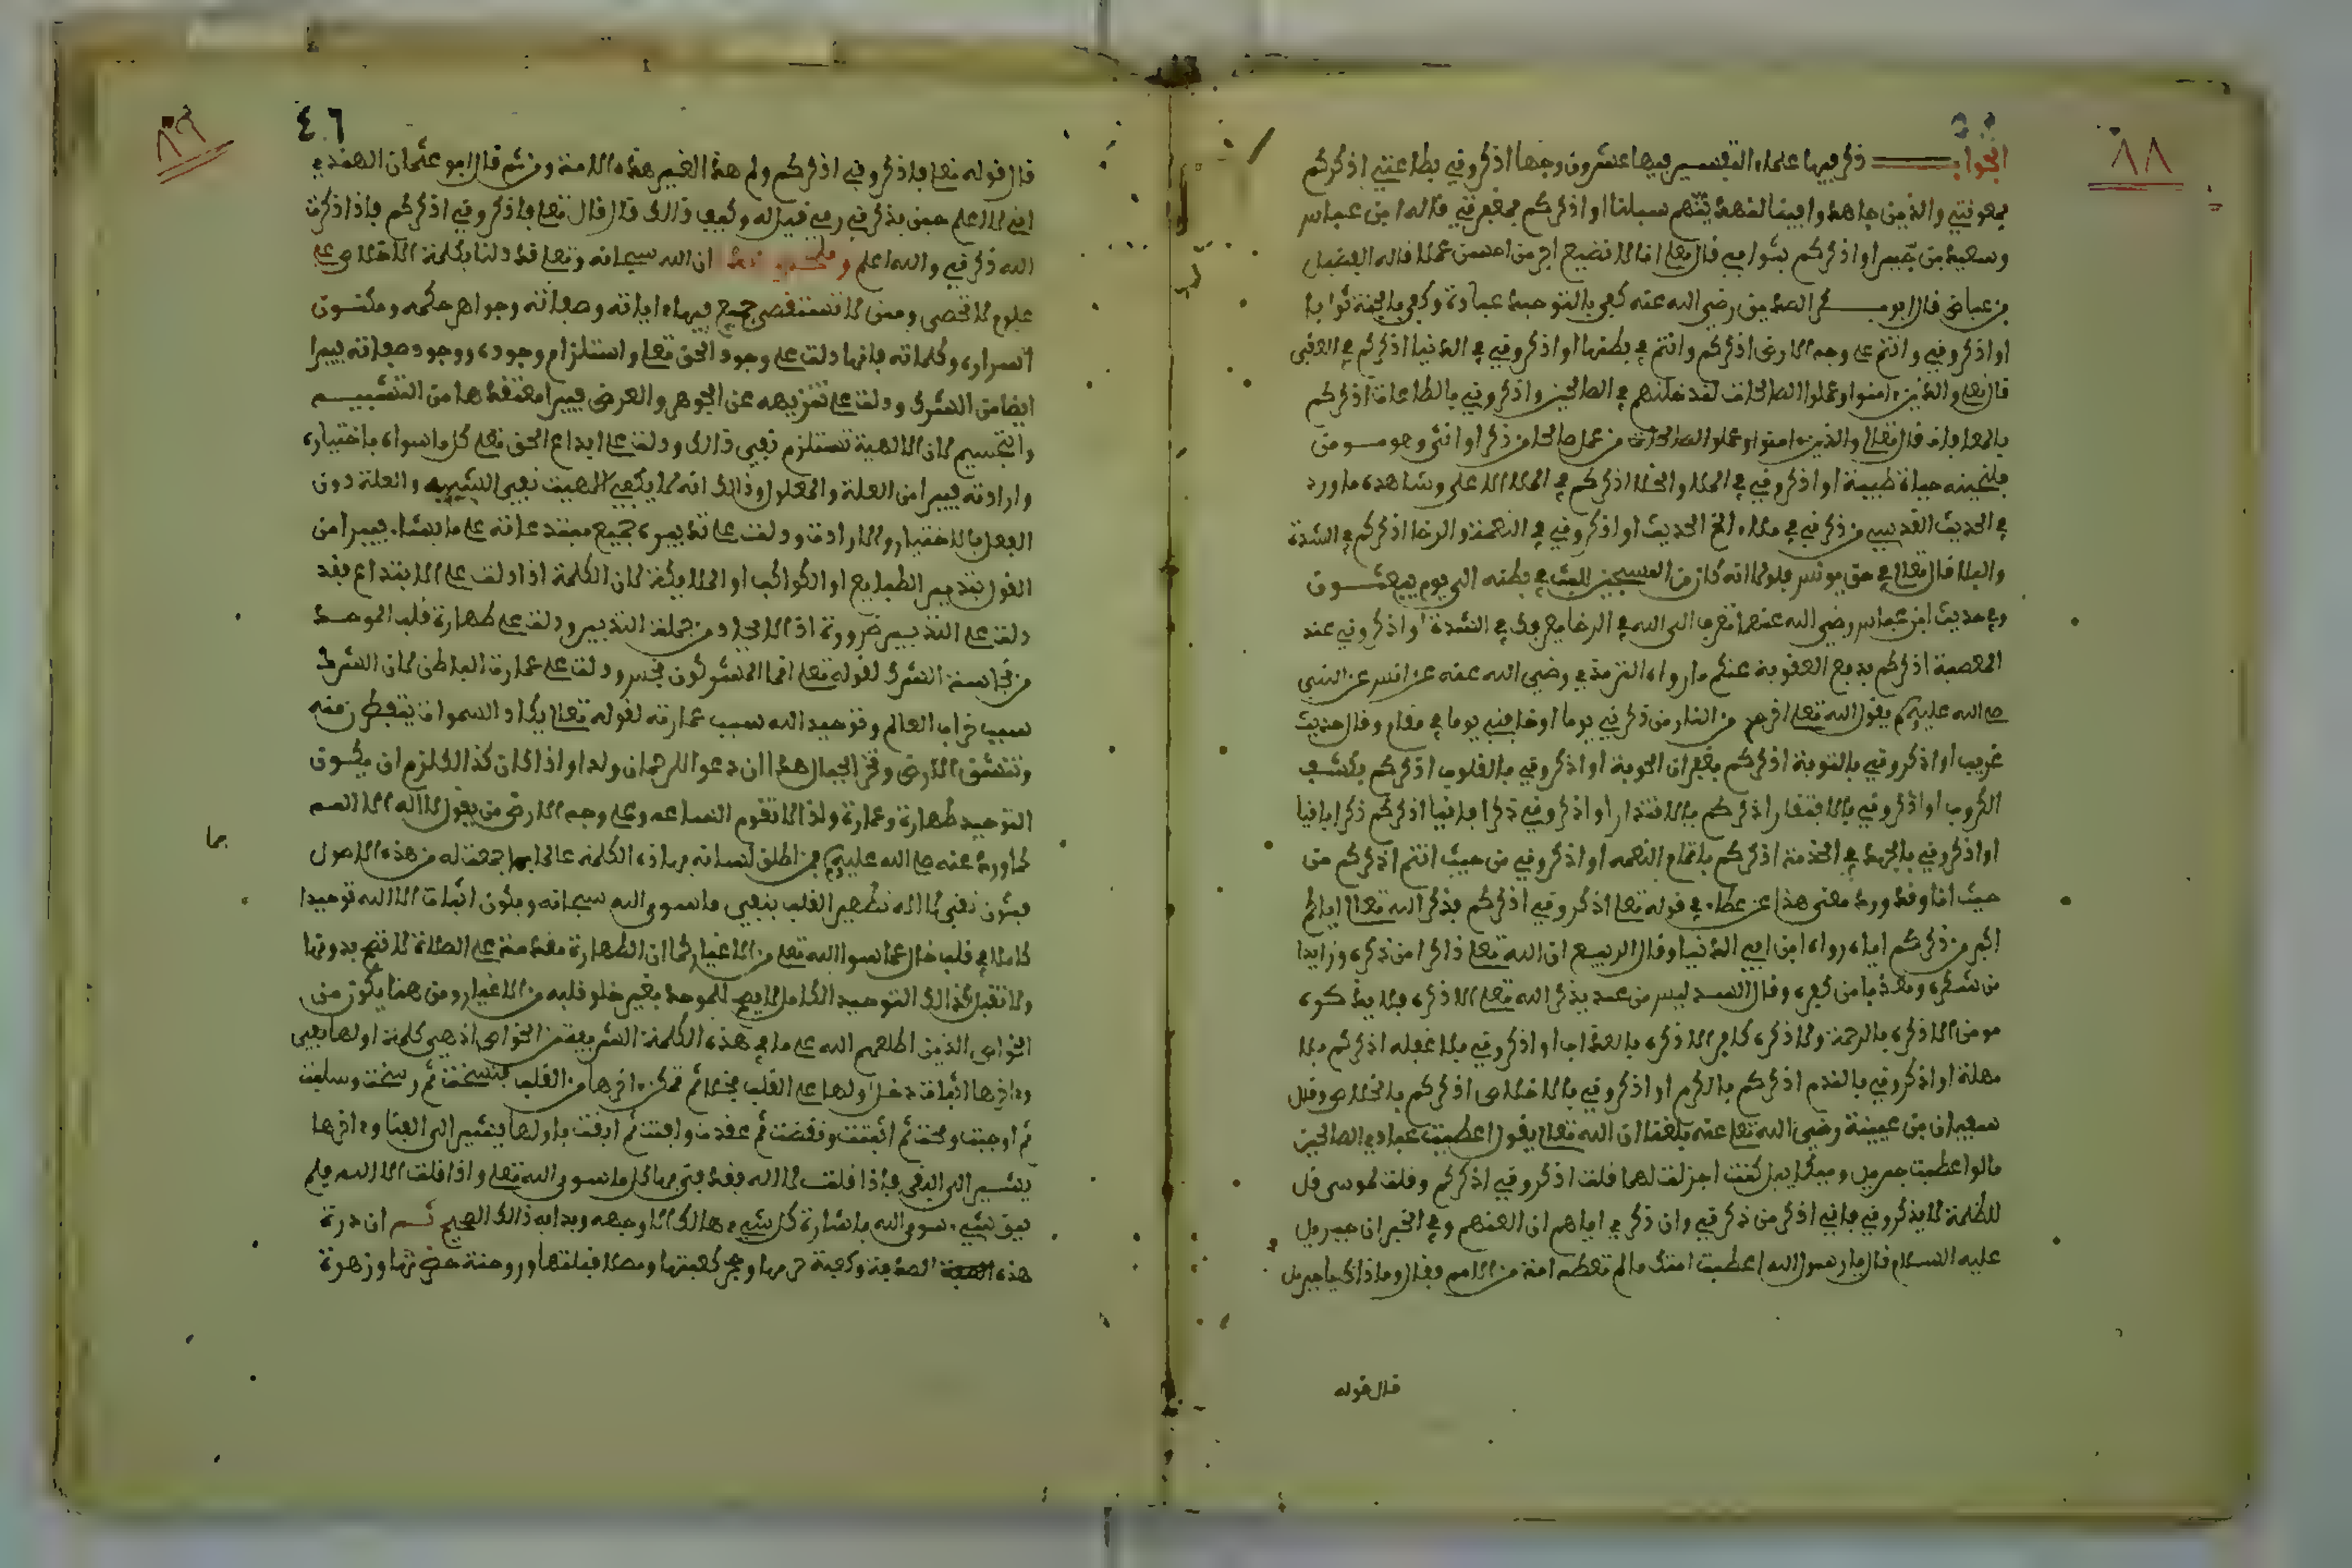 ٨٨
الجواب ذكر فيها علماء التفسير فيها عشرون وجها اذكروني بطاعتي اذكركم
بمعونتي والذين جاهدوا فينا لنهدينهم سبلنا او اذكركم بمغفرتي قاله ابن عباس
وسعيد بن جبير او اذكركم بثوابي قال تعلى انا لا نضيع اجر من احسن عملا قاله الفضيل
بن عياض قال ابو بكر الصديق رضي الله عنه كفى بالتوحيد عبادة وكفى بالجنة ثوابا
او اذكروني وانتم على وجه الارض اذكركم وانتم في بطنها او اذكروني في الدنيا اذكركم في العقبى
قال تعلى والذين ءامنوا وعملوا الصالحات لندخلنهم في الصالحين واذكروني بالطاعات اذكركم
بالمعافات قال تعالى من عمل صالحا من ذكر او انثى وهو مومن
فلنحيينه حياة طيبة او اذكروني في الملا والخلا اذكركم في الملا الاعلى وشاهده ما ورد
في الحديث القدسي من ذكرني في ملاء الخ الحديث او اذكروني في النعمة والرخا اذكركم في الشدة
والبلا قال تعالى في حق يونس فلولا انه كان من المسبحين للبث في بطنه الى يوم يبعثون
وفي حديث ابن عباس رضي الله عنهما تعرف الى الله في الرخا يعرفك في الشدة او اذكروني عند
المعصية اذكركم بدفع العقوبة عنكم ما رواه الترمذي رضي الله عنه عن انس عن النبي
صلى الله عليه وسلم يقول الله تعلى اخرجوا من النار من ذكرني يوما او خافني يوما في مقام وقال حديث
غريب او اذكروني بالتوبة اذكركم بغفران الحوبة او اذكروني بالقلوب اذكركم بكشف
الكروب او اذكروني بالافتقار اذكركم بالاقتدار او اذكروني ذكرا فانيا اذكركم ذكرا باقيا
او اذكروني بالجهد في الخدمة اذكركم باتمام النعمه او اذكروني من حيث انتم اذكركم من
حيث انا وقد ورد معنى هذا عن عطاء في قوله تعلى اذكروني اذكركم فذكر الله تعالى اياكم
اكبر من ذكركم اياه رواه ابن ابي الدنيا وقال الربيع ان الله تعلى ذاكرا من ذكره وزايدا
من شكره ومعذبا من كفره وقال السدي ليس من عبد يذكر الله تعلى الا ذكره فلا يذكره
مومن الا ذكره بالرحمة ولا ذكره كافر الا ذكره بالعذاب او اذكروني بلا غفله اذكركم بلا
مهلة او اذكروني بالندم اذكركم بالكرم او اذكروني بالاخلاص اذكركم بالخلاص وقال
سفيان بن عيينة رضي الله تعلى عنه بلغنا ان الله تعالى يقول اعطيت عبادي الصالحين
ما لو اعطيت جبريل وميكاييل كنت اجزلت لهما قلت اذكروني اذكركم وقلت لموسى قل
للظلمة لا يذكروني فاني اذكر من ذكرني وان ذكري اياهم ان العنهم وفي الخبر ان جبريل
عليه السلام قال يا رسول الله اعطيت امتك ما لم تعطه امة من الامم فقال وما ذاك يا جبريل
قال قوله
٨٩
٤٦
قال قوله تعلى فاذكروني اذكركم ولم هذا الغير هذه الامة ومن ثم قال ابو عثمان الهندي
اني لا اعلم حين يذكرني ربي قيل له وكيف ذالك قال قال تعلى فاذكروني اذكركم فاذا ذكرت
الله ذكرني والله اعلم ان الله سبحانه وتعلى قد دلنا بكلمة الاخلاص على
علوم لا تحصى ومنن لا تستقصى جمع فيها ءاياته وصفاته وجواهر حكمه ومكنون
اسراره وكلماته فانها دلت على وجود الحق تعلى واستلزام وجوده ووجود صفاته فيبرا
ايضا من الشرك ودلت على تنزيهه عن الجوهر والعرض فيبرا معتقدها من التشبيه
والتجسيم لان الالهية تستلزم نفي ذالك ودلت على ابداع الحق تعلى كل ما سواه باختياره
وارادته فيبرا من العلة والمعلول وذالك انه لما يكفي المهيت نفي الشبيه والعلة دون
الفعل بالاختيار والارادة ودلت على تدبيره جميع مبتدعاته على ما يشاء فيبرا من
القول بتدبير الطبايع او الكواكب او الملايكة لان الكلمة اذا دلت على الابتداع فقد
دلت على التدبير ضرورة اذ الايجاد من جملة التدبير ودلت على طهارة قلب الموحد
من نجاسة الشرك لقوله تعلى انما المشركون نجس ودلت على عمارة الباطن لان الشرك
سبب خراب العالم وتوحيد الله سبب عمارته لقوله تعالى يكاد السموات يتفطرن منه
وتنشق الارض وتخر الجبال هدا ان دعوا للرحمان ولدا واذا كان كذالك لزم ان يكون
التوحيد طهارة وعمارة ولذا لا تقوم الساعه وعلى وجه الارض من يقول لا اله الا الله
كما ورد عنه صلى الله عليه وسلم فمن اطلق لسانه بهاذه الكلمة عالما بما جمعت له من هذه الاصول
بما
فيكون نفي لا اله تطهير القلب بنفي ما سوى الله سبحانه ويكون اثبات الا الله توحيدا
كاملا في قلب خال عما سوا الله تعلى من الاغيار كما ان الطهارة مقدمة على الصلاة لا تتم بدونها
ولا تقبل كذالك التوحيد الكامل لا يصح للموحد بغير خلو قلبه من الاغيار ومن هنا يكون من
الخواص الذين اطلعهم الله على ما في هذه الكلمة الشريفة من الخواص اذ هي كلمة اولها نفي
وءاخرها اثبات دخل اولها على القلب فجلا ثم تمكن ءاخرها من القلب فنسخت ثم رسخت وسلبت
ثم اوجبت ومحت ثم اثبتت ونقضت ثم عقدت وافنت ثم ابقت فاولها يشير الى الفنا وءاخرها
يشير الى البقى فاذا قلت لا اله فقد فنى بها كل ما سوى الله تعلى واذا قلت الا الله فلم
يبق شيء سوى الله باشارة كل شيء هالك الا وجهه وبدا به ذالك الصحيح ثم ان درة
هذه الصدفة وكعبة حرمها وحجر كعبتها ومصلا قبلتها وروضة حضرتها وزهرة